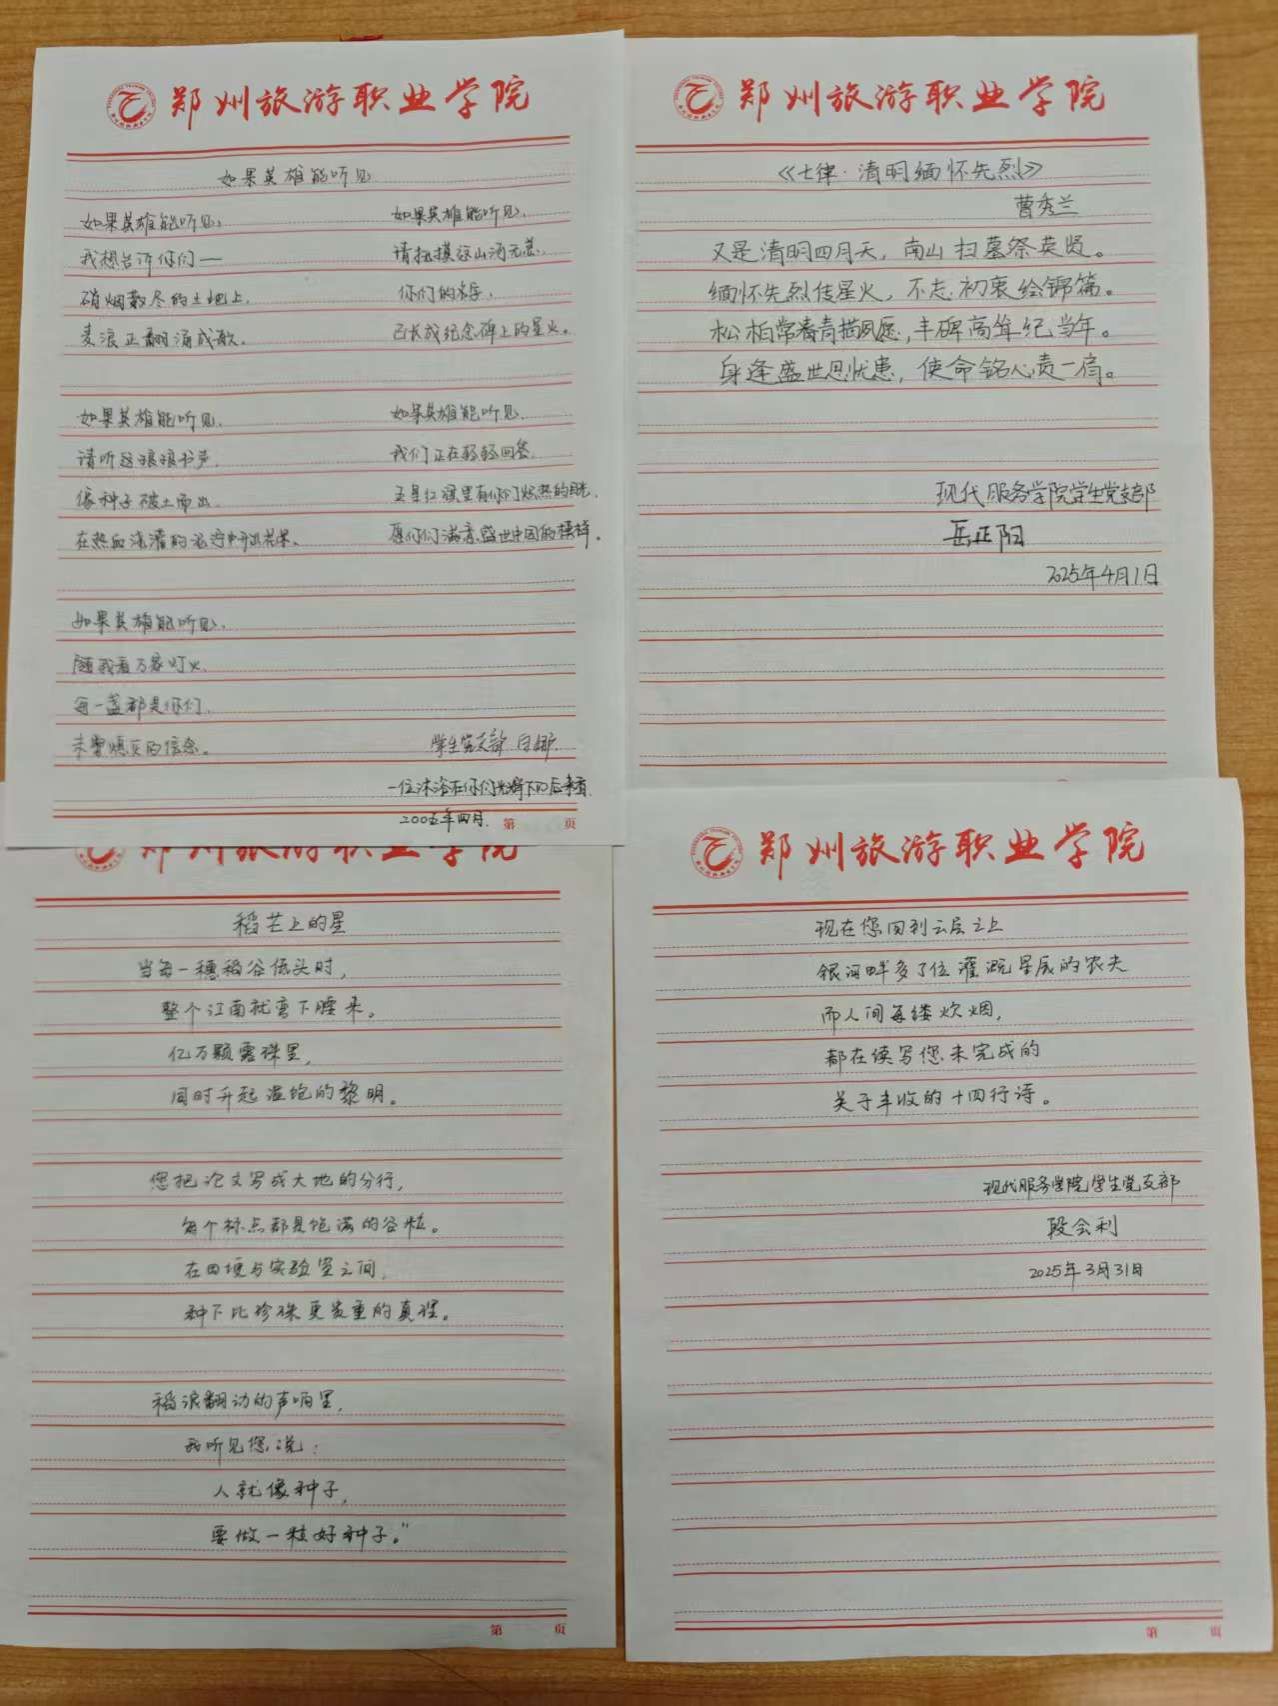 郑州旅游职业学院
如果英雄能听见
如果英雄能听见,
我想告诉你们——
硝烟散尽的土地上,
麦浪正翻涌成歌。
如果英雄能听见,
请听这琅琅书声,
像种子破土而出,
在热血浇灌的
如果英雄能听见,
随我看万家灯火,
每一盏都是你们,
未曾熄灭的信念。
如果英雄能听见,
请抚摸这山河无恙,
你们的名字,
已长成纪念碑上的星火。
如果英雄能听见,
我们正在轻轻回答,
五星红旗里有你们炽热的
愿你们满意,盛世中国的模样。
学生党支部 白娜
一位沐浴在你们光辉下的后来者
2005年四月.
第 页
郑州旅游职业学院
《七律·清明缅怀先烈》
曹秀兰
又是清明四月天,南山扫墓祭英贤。
缅怀先烈传星火,不忘初衷绘锦篇。
松柏常青描夙愿,丰碑高耸纪当年。
身逢盛世思忧患,使命铭心责一肩。
现代服务学院学生党支部
岳正阳
2025年4月1日
郑州旅游职业学院
稻芒上的星
当每一穗稻谷低头时,
整个江南就弯下腰来。
亿万颗露珠里,
同时升起温饱的黎明。
您把论文写成大地的分行,
每个标点都是饱满的谷粒。
在田埂与实验室之间,
种下比珍珠更贵重的真理。
稻浪翻动的声响里,
我听见您说:
人就像种子,
要做一粒好种子。”
第 页
郑州旅游职业学院
现在您回到云层之上
银河畔多了位灌溉星辰的农夫
而人间每缕炊烟,
都在续写您未完成的
关于丰收的十四行诗。
现代服务学院学生党支部
段会利
2025年3月31日
第 页